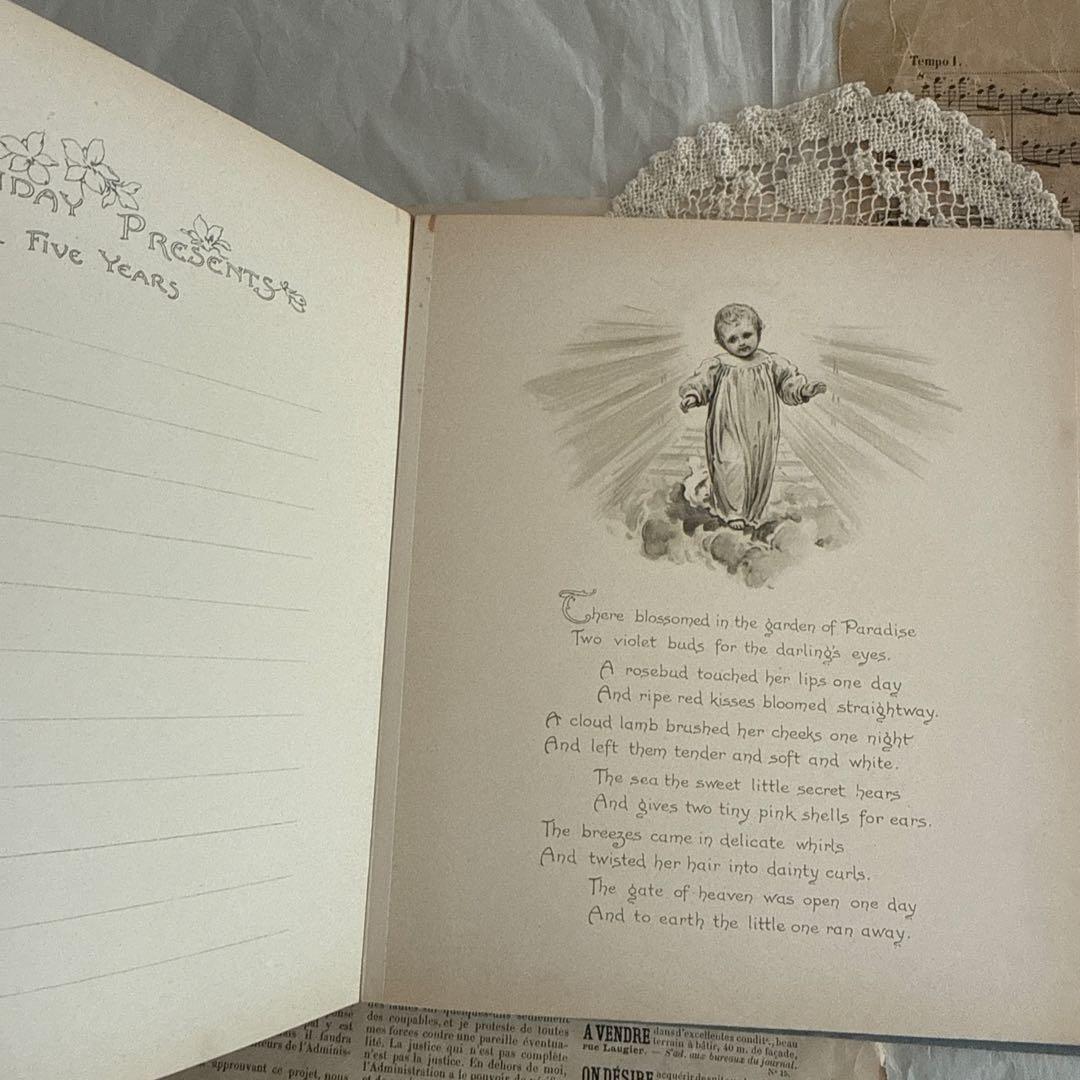 PRESENTS
FIVE YEARS
There blossomed in the garden of Paradise
Two violet buds for the darling's eyes.
A rosebud touched her lips one day
And ripe red kisses bloomed straightway.
A cloud lamb brushed her cheeks one night
And left them tender and soft and white.
The sea the sweet little secret hears
And gives two tiny pink shells for ears.
The breezes came in delicate whirls
And twisted her hair into dainty curls.
The gate of heaven was open one day
And to earth the little one ran away.
Tempo I.
pal y est
il faudra
de l'Adminis-
approuvant ce projet, nous
des coupables, et je proteste de toutes
mes forces contre une pareille éventua-
lité. La justice qui n'est pas complète
n'est pas la justice. En dehors de moi,
l'Administration a le pouvoir de
A VENDRE dans d'excellentes condit., beau
terrain à bâtir, 40 m. de façade,
rue Laugier. — S'ad. aux bureaux du journal.
Nº 15.
ON DÉSIRE acquérir